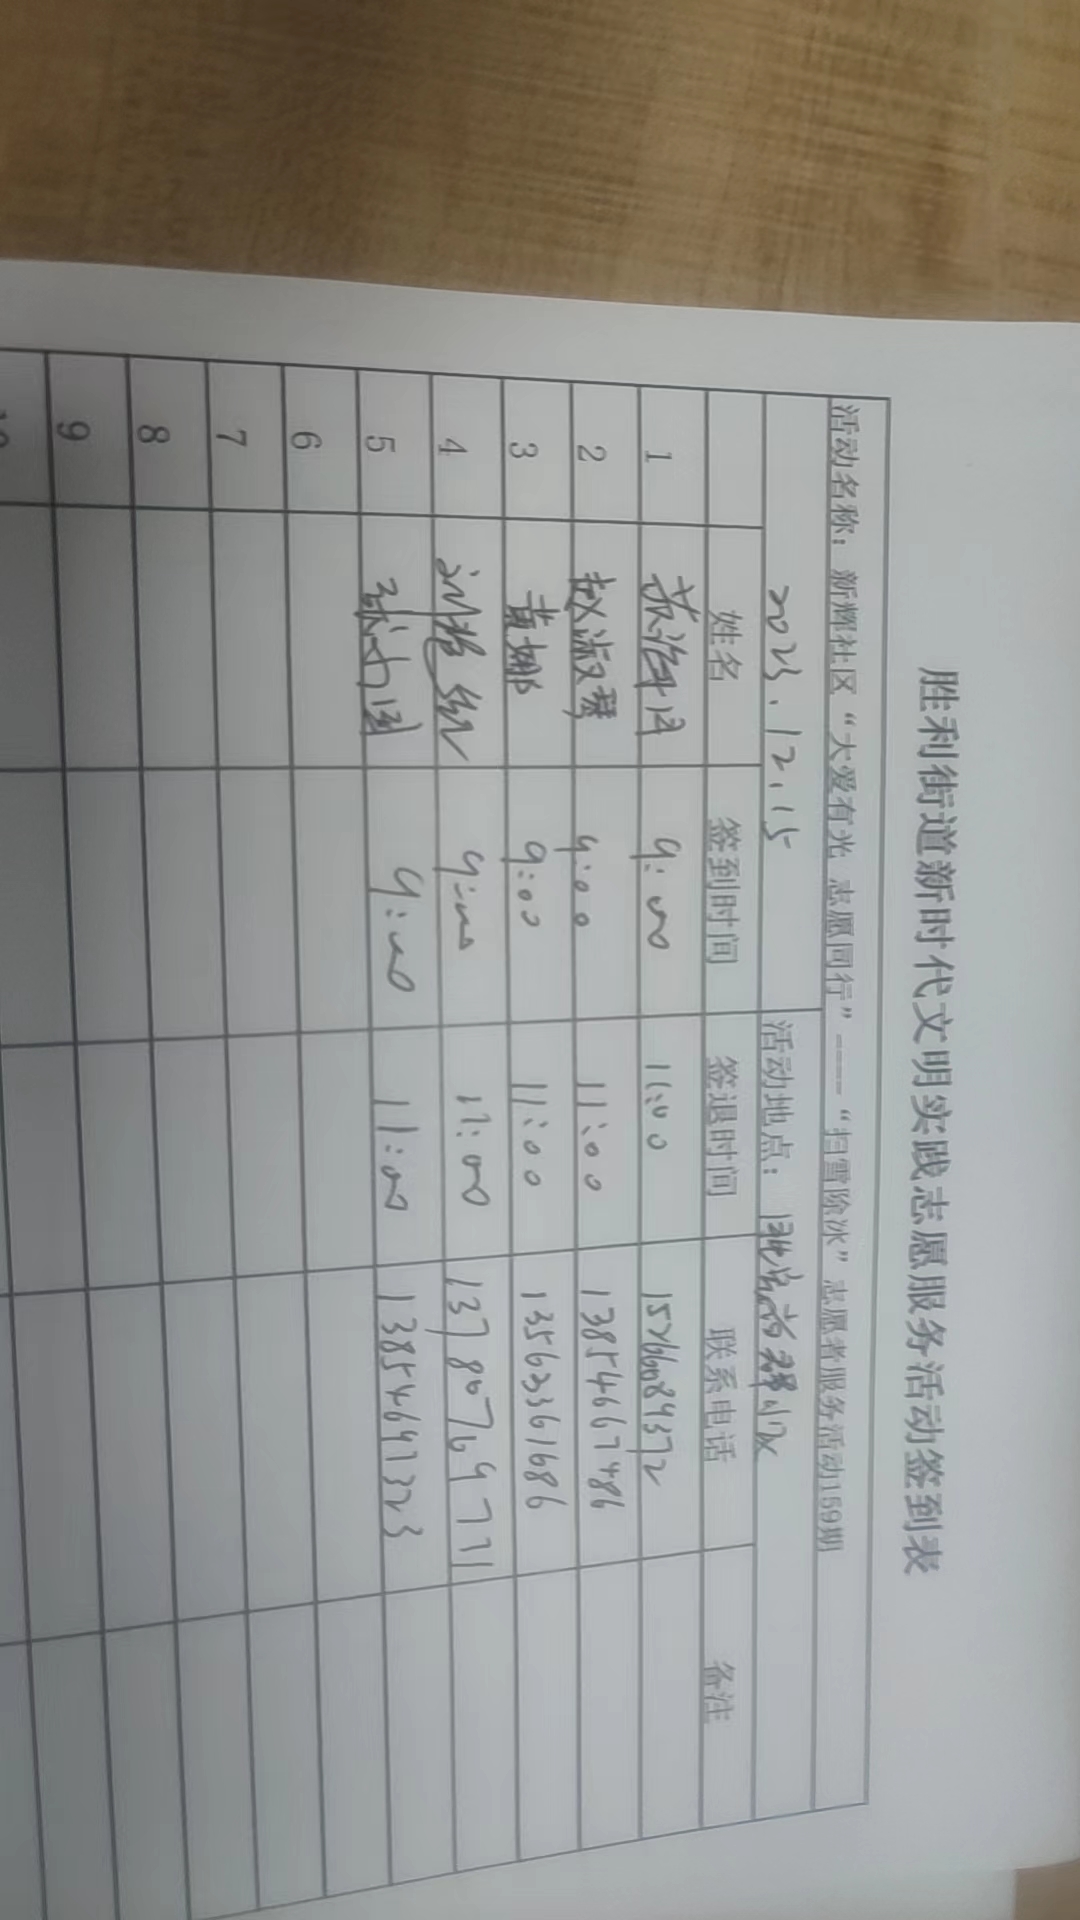 胜利街道新时代文明实践志愿服务活动签到表
活动名称：新辉社区“大爱有光 志愿同行”----“扫雪除冰”志愿者服务活动159期
2023.12.15 活动地点：
姓名 签到时间 签退时间 联系电话 备注
1 9:00 11:00
2 赵淑琴 9:00 11:00 13854667486
3 黄娜 9:00 11:00 13562361686
4 9:00 11:00 13780769771
5 9:00 11:00 13854697323
6
7
8
9
10